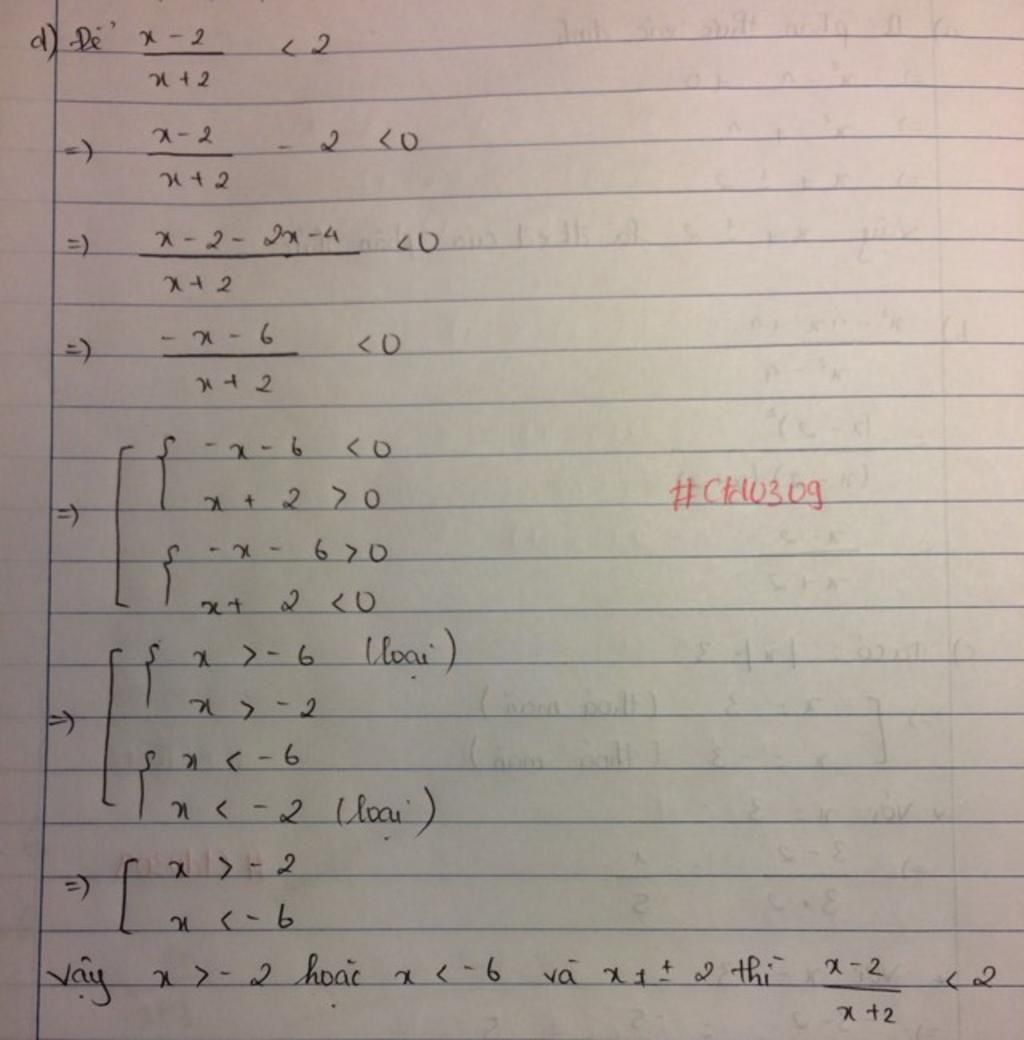 d) Để x-2/x+2 < 2
=) x-2/x+2 - 2 <0
=) x-2-2x-4/x+2 <0
=) -x-6/x+2 <0
=) [ { -x-6 <0
x+2 >0
{ -x-6 >0
x+2 <0
#CHW309
=) [ { x >-6 (loại)
x > -2
{ x < -6
x < -2 (loại)
=) [ x > -2
x < -6
vậy x > -2 hoặc x < -6 và x ≠ ± 2 thì x-2/x+2 < 2